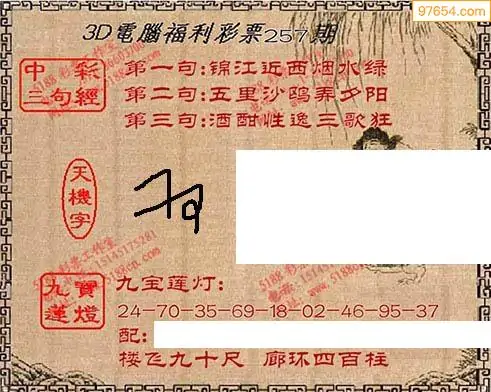 97654.com
3D電腦福利彩票257期
中彩三句經
第一句:锦江近西烟水绿
第二句:五里沙鸥弄夕阳
第三句:酒酣性逸三歌狂
天機字
九寶蓮燈
九宝莲灯:
24-70-35-69-18-02-46-95-37
配:
楼飞九十尺 廊环四百柱